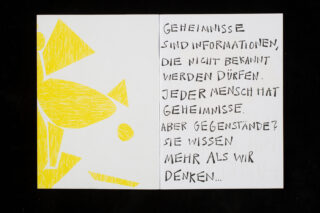 GEHEIMNISSE
SIND INFORMATIONEN,
DIE NICHT BEKANNT
WERDEN DÜRFEN.
JEDER MENSCH HAT
GEHEIMNISSE.
ABER GEGENSTÄNDE?
SIE WISSEN
MEHR ALS WIR
DENKEN...